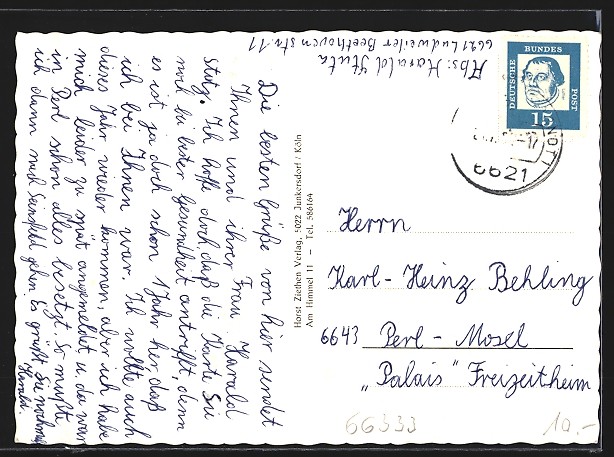 Die besten Grüße von hier sendet
Ihnen und ihrer Frau. Harald
Stutz. Ich hoffe doch, daß die Karte Sie
noch bei bester Gesundheit antrifft, denn
es ist ja doch schon 1 Jahr her, daß
ich bei Ihnen war. Ich wollte auch
dieses Jahr wieder kommen, aber ich habe
mich leider zu spät angemeldet u. da war
in Perl schon alles besetzt. So mußte
ich dann nach gehen. Es grüßt Sie nochmals
Harald.
Abs: Harald Stutz
6621 Ludweiler Beethovenstr. 11
Horst Ziethen Verlag, 5022 Junkersdorf / Köln
Am Himmel 11 – Tel. 586164
DEUTSCHE
BUNDES
POST
15
6621
Herrn
Karl-Heinz Behling
6643 Perl-Mosel
„Palais" Freizeitheim
66333
10.-